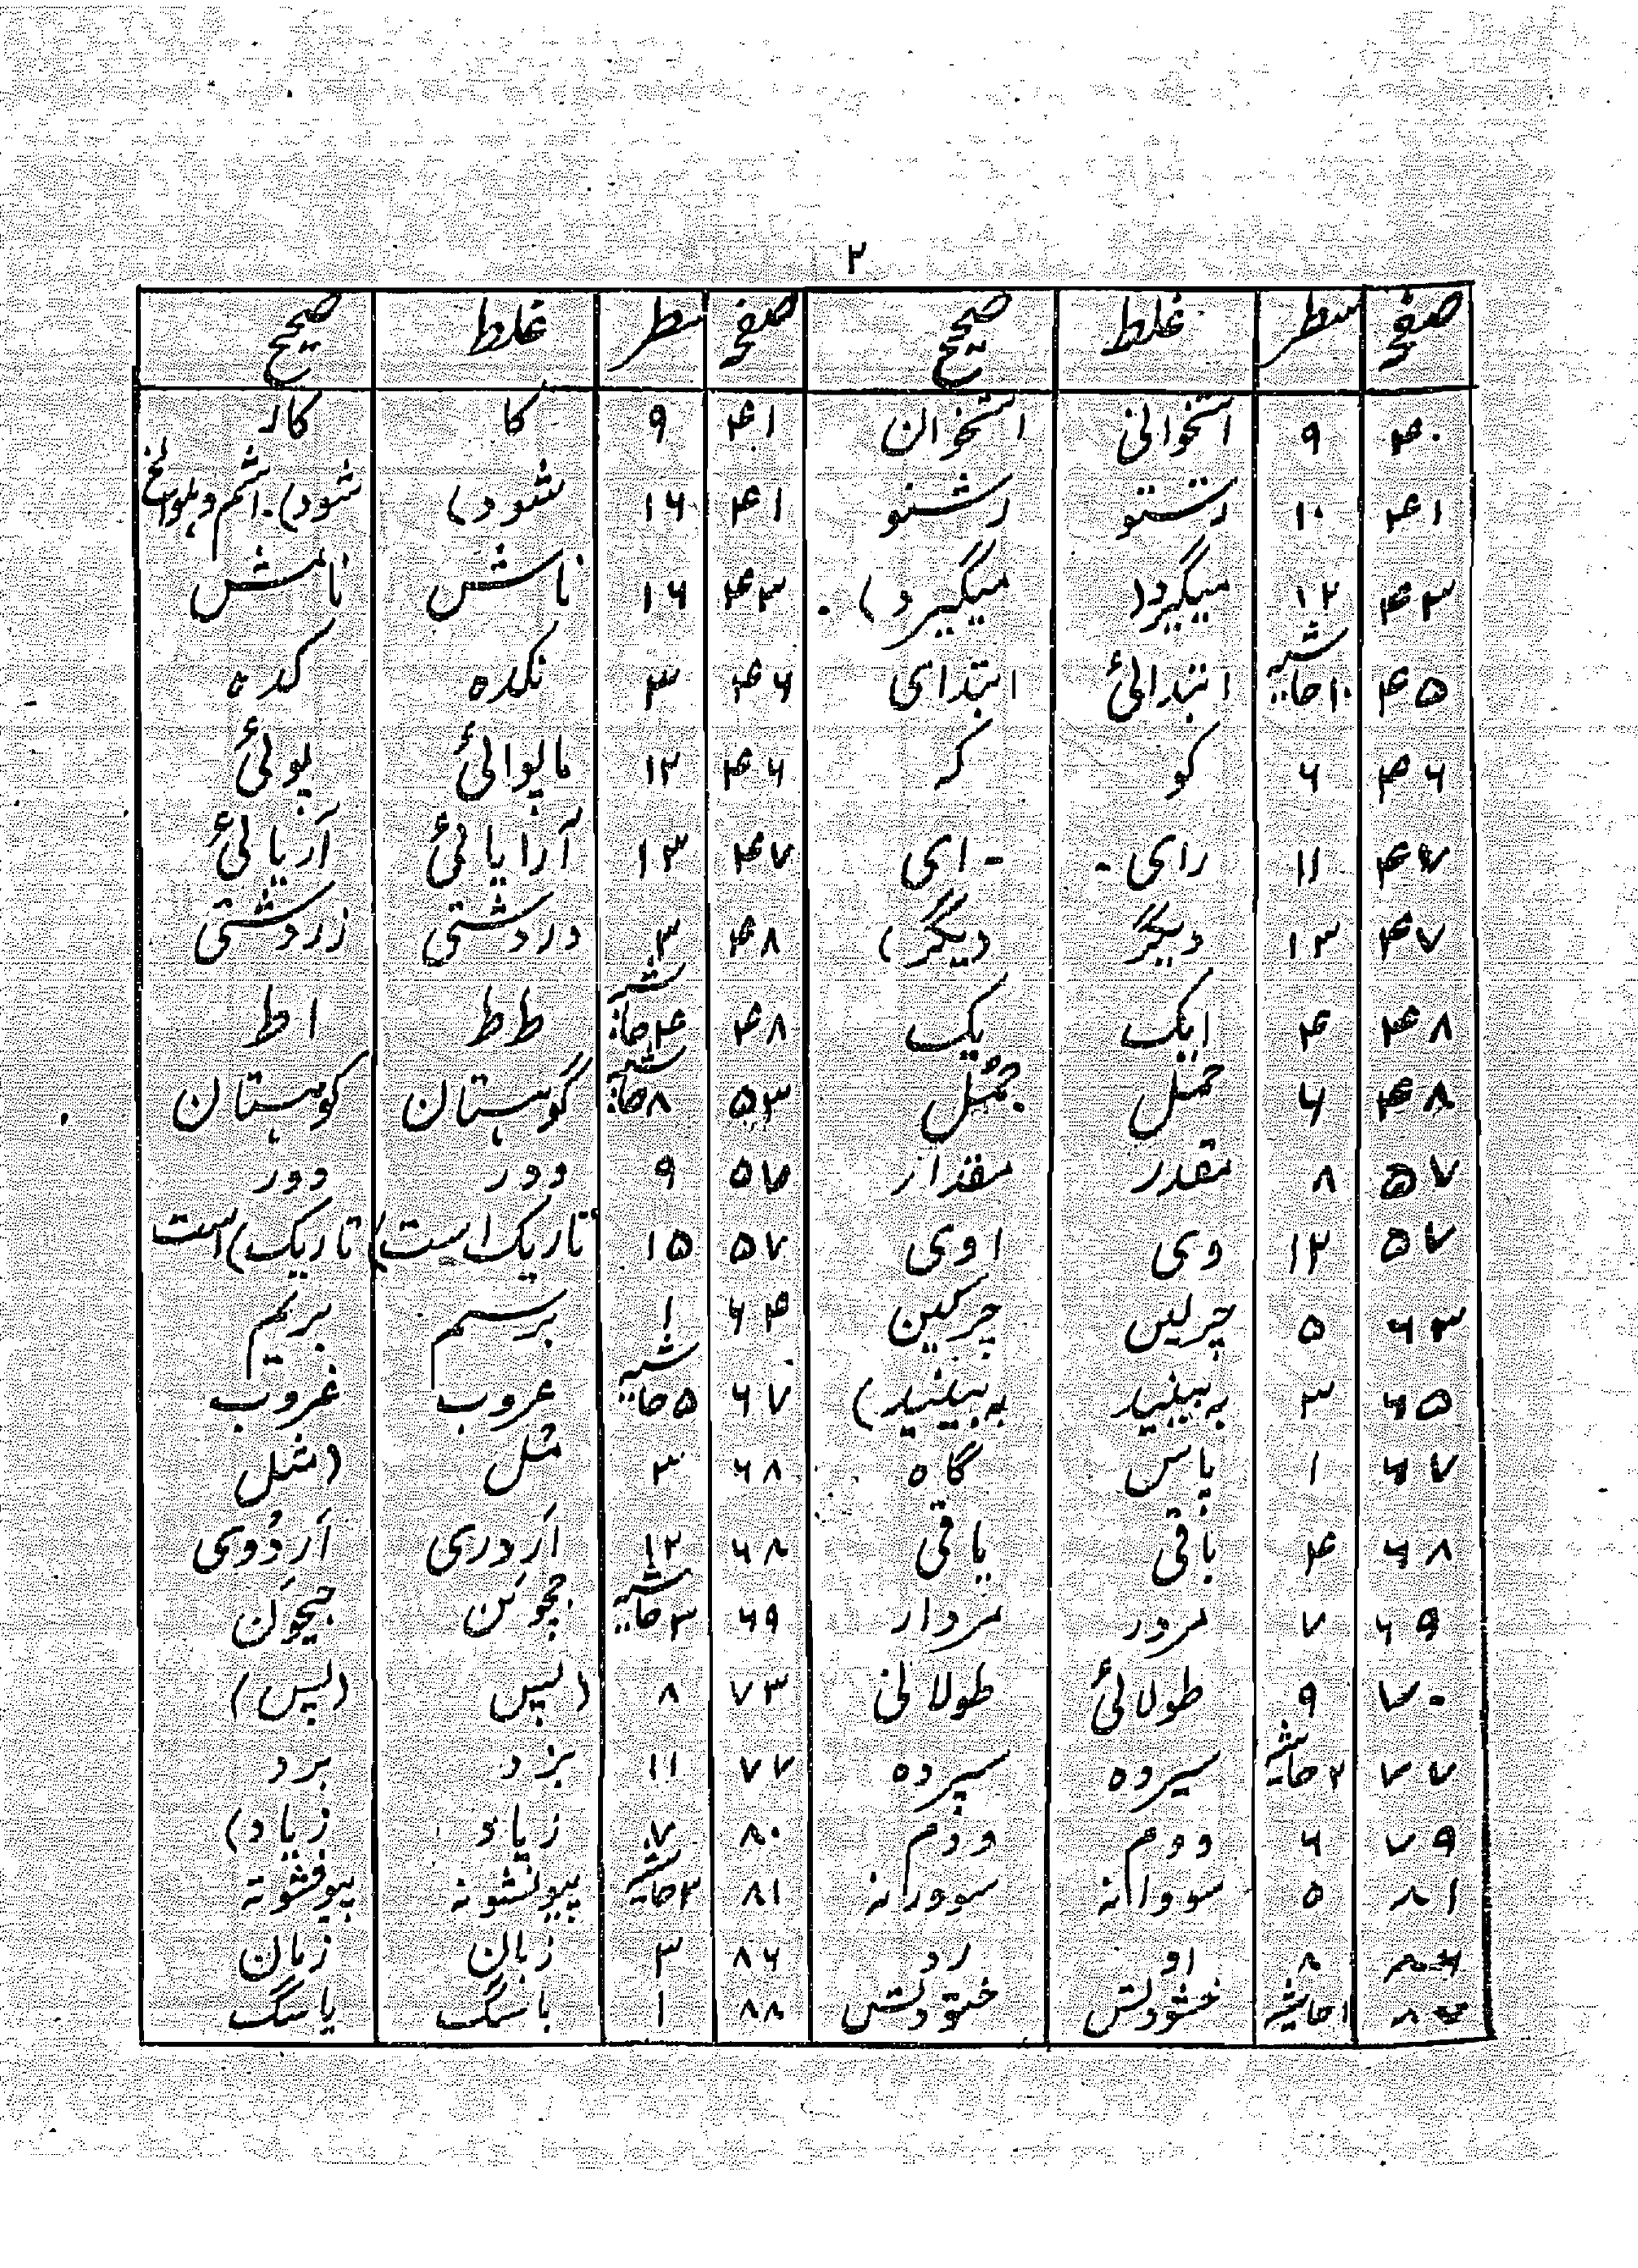 ۲
صفحہ سطر غلط صحیح صفحہ سطر غلط صحیح
۴۰ ۹ استخوانی استخوان ۴۱ ۹ کا کار
۴۱ ۱۰ رستو رشنو ۴۱ ۱۶ شود) شود).
۴۳ ۱۲ میگیرد( میگیرد). ۴۳ ۱۶ ناش نامش
۴۵ ۱۰حاشیہ ابتدائی ابتدای ۴۶ ۳ نکده کده
۴۶ ۶ کو که ۴۶ ۱۲ مایوائی یوئی
۴۷ ۱۱ رای - - ای ۴۷ ۱۳ آزایائی آریائی
۴۷ ۱۳ دیگر دیگر) ۴۸ ۳ دردشتی زردشتی
۴۸ ۴ ایک یک ۴۸ ۴حاشیہ طط اط
۴۸ ۶ خمل جمل ۵۳ ۸حاشیہ گوہستان کوہستان
۵۷ ۸ مقدر مقدار ۵۷ ۹ ودر دور
۵۷ ۱۲ وی اوی ۵۷ ۱۵ تاریک است) تاریک) است
۶۳ ۵ چرلیں چرکین ۶۴ ۱ برسم بریم
۶۵ ۳ به ببنید به ببینید) ۶۷ ۵حاشیہ عروب غروب
۶۷ ۱ پاس گاه ۶۸ ۳ مثل (مثل
۶۸ ۴ باقی یاقی ۶۸ ۱۲ اَردری اَردُوی
۶۹ ۷ مرور مردار ۶۹ ۳حاشیہ جچوَن جیچوَن
۷۰ ۹ طولائی طولانی ۷۳ ۸ (پس (پس)
۷۷ ۲حاشیہ سیرده سپرده ۷۷ ۱۱ بزد برد
۷۹ ۶ ووم وذم ۸۰ ۷ زیاد زیاد)
۸۱ ۵ سووانه سودرانه ۸۱ ۳حاشیہ پیونشونه پیوفشوته
۸۶ ۸ او رد ۸۶ ۳ زبان زمان
۱حاشیہ خشودلش خوَدلش ۸۸ ۱ باسگ یاسگ